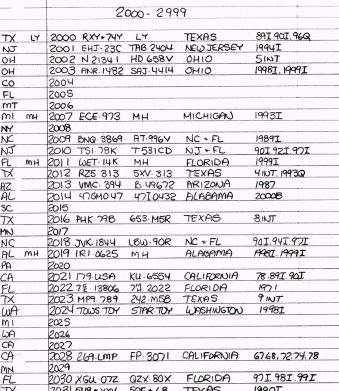 2000 - 2999
TX LY 2000 RXY•74Y LY TEXAS 89I 90I.96Q
NJ 2001 EHJ-23C TAB 2404 NEW JERSEY 1994I
OH 2002 N 21341 HD 658V OHIO SINT
OH 2003 ANR.1482 SAJ.4414 OHIO 1998I.1999I
CO 2004
FL 2005
MT 2006
MI MH 2007 ECE 973 MH MICHIGAN 1993I
NY 2008
NC 2009 BNQ 3869 AT.996V NC + FL 1989I
NJ 2010 TSI.78K T531CD NJ + FL 90I 92I.97I
FL MH 2011 WET.14K MH FLORIDA 1999I
TX 2012 RZ5 313 5XV.313 TEXAS 4INT.1993Q
AZ 2013 VMC.394 B.49672 ARIZONA 1987
AL 2014 47GM047 47I0432 ALABAMA 2000B
SC 2015
TX 2016 PHK 79B 653.M5R TEXAS 8INT
MN 2017
NC 2018 JVK.1844 LBW.90R NC + FL 90I.94I.97I
AL MH 2019 IRI 0625 MH ALABAMA 1998I.1999I
PA 2020
CA 2021 179.USA KU.6554 CALIFORNIA 78.89I 90I
FL 2022 7E.13806 7D 2022 FLORIDA 1971
TX 2023 MP9 789 242.M5B TEXAS 9 INT
WA 2024 TOWS TOY STAR TOY WASHINGTON 1998I
MI 2025
WA 2026
CA 2027
CA 2028 269.LMP FP.3071 CALIFORNIA 67 68.72 74.78
MN 2029
FL 2030 XGU.07Z QZX.80X FLORIDA 97I 98I.99I
TX 2031 TEXAS 1990I